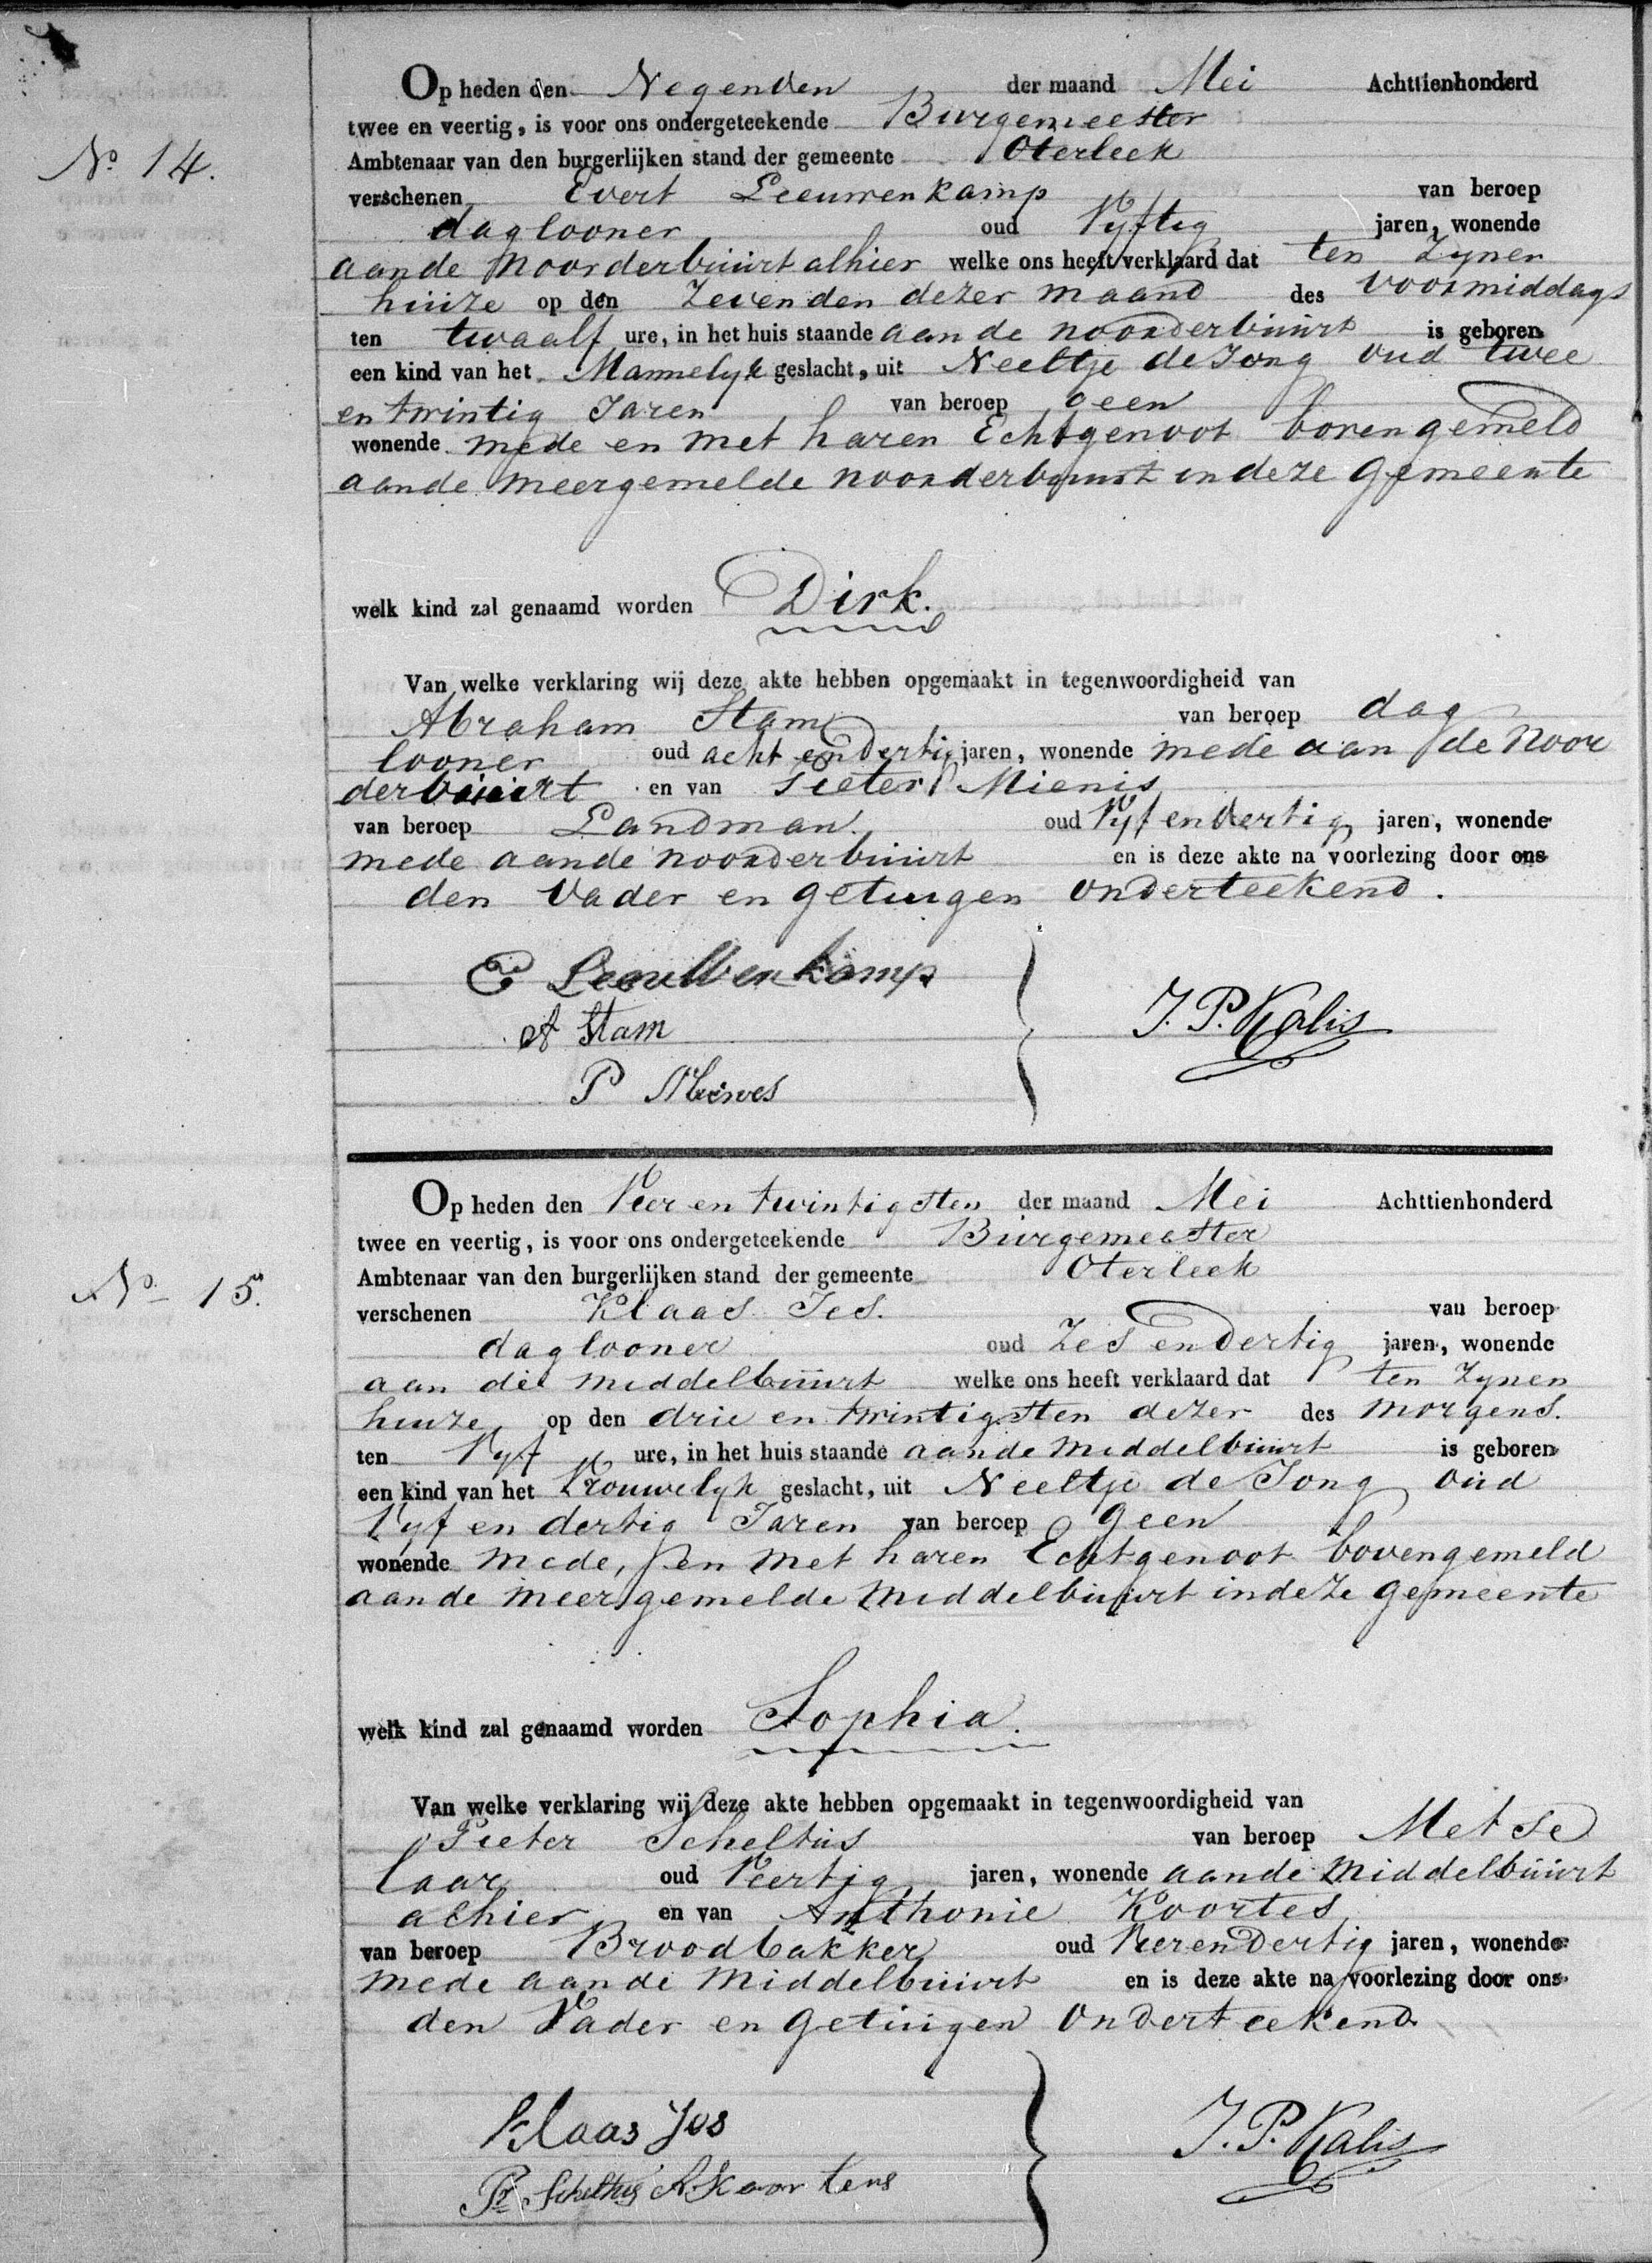 Op heden den Negenden der maand Mei Achttienhonderd
twee en veertig, is voor ons ondergeteekende Burgemeester
No 14.
Ambtenaar van den burgerlijken stand der gemeente Oterleek
verschenen Evert Leeuwenkamp van beroep
daglooner oud Vyftig jaren, wonende
aande Noorderbuurt alhier welke ons heeft verklaard dat ten Zynen
huize op den Zevenden dezer maand des voormiddags
ten twaalf ure, in het huis staande aande noorderbuurt is geboren
een kind van het Mannelyk geslacht, uit Neeltje de Jong oud twee
en twintig Jaren van beroep Geen
wonende mede en met haren Echtgenoot bovengemeld
aande meergemelde noorderbuurt in deze gemeente
welk kind zal genaamd worden Dirk.
Van welke verklaring wij deze akte hebben opgemaakt in tegenwoordigheid van
Abraham Stam van beroep dag
looner oud acht en dertig jaren, wonende mede aan de Noor
derbuurt en van Pieter Mienis
van beroep Landman. oud Vyf en dertig jaren, wonende
mede aande noorderbuurt en is deze akte na voorlezing door ons
den Vader en getuigen onderteekend.
E Leeuwenkamp
A Stam
J. P. Kalis
P
Op heden den Vier en twintigsten der maand Mei Achttienhonderd
twee en veertig, is voor ons ondergeteekende Burgemeester
Ambtenaar van den burgerlijken stand der gemeente Oterleek
No 15.
verschenen Klaas Jes. van beroep
daglooner oud Zes en dertig jaren, wonende
aan die middelbuurt welke ons heeft verklaard dat ten Zynen
huize op den drie en twintigsten dezer des morgens.
ten Vyf ure, in het huis staande aande middelbuurt is geboren
een kind van het Vrouwelyk geslacht, uit Neeltje de Jong oud
Vyf en dertig Jaren van beroep Geen
wonende mede, en met haren Echtgenoot bovengemeld
aande meergemelde middelbuurt in deze gemeente
welk kind zal genaamd worden Sophia.
Van welke verklaring wij deze akte hebben opgemaakt in tegenwoordigheid van
Pieter Scheltus van beroep Metse
laar oud Veertig jaren, wonende aande Middelbuurt
alhier en van Anthonie Koortes
van beroep Broodbakker oud Vier en dertig jaren, wonende
mede aande Middelbuurt en is deze akte na voorlezing door ons
den Vader en getuigen onderteekend
Klaas Jes
J. P. Kalis
Pr Scheltus A Koortens